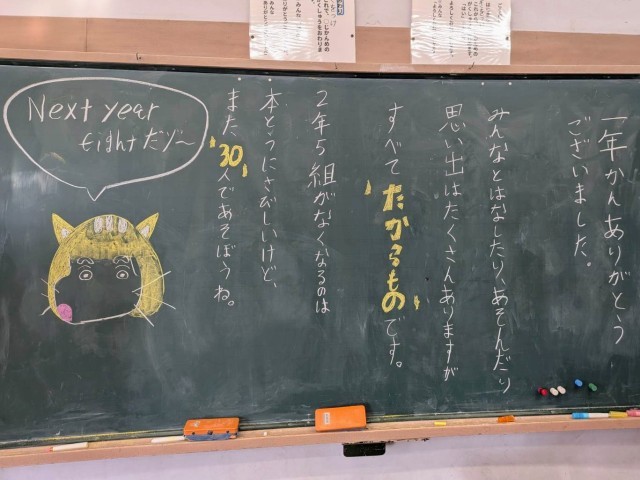 一年かんありがとう
ございました。
みんなとはなしたり、あそんだり
思い出はたくさんありますが
すべてたからものです。
2年5組がなくなるのは
本とうにさびしいけど、
また"30"人であそぼうね。
Next year
fightだゾ〜